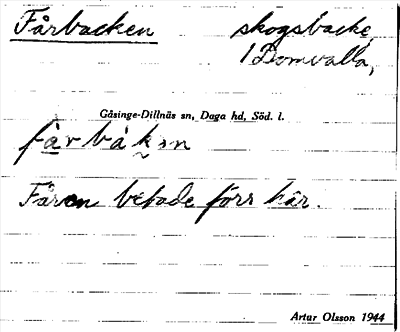 Fårbacken skogsbacke,
i Domvalla,
Gåsinge-Dillnäs sn, Daga hd, Söd. l.
Fåren betade förr här.
Artur Olsson 1944